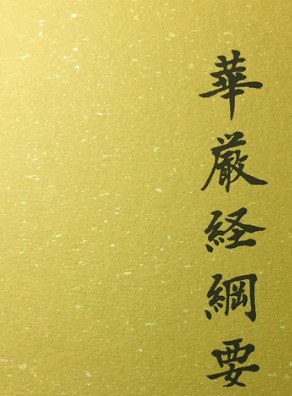 華厳経綱要